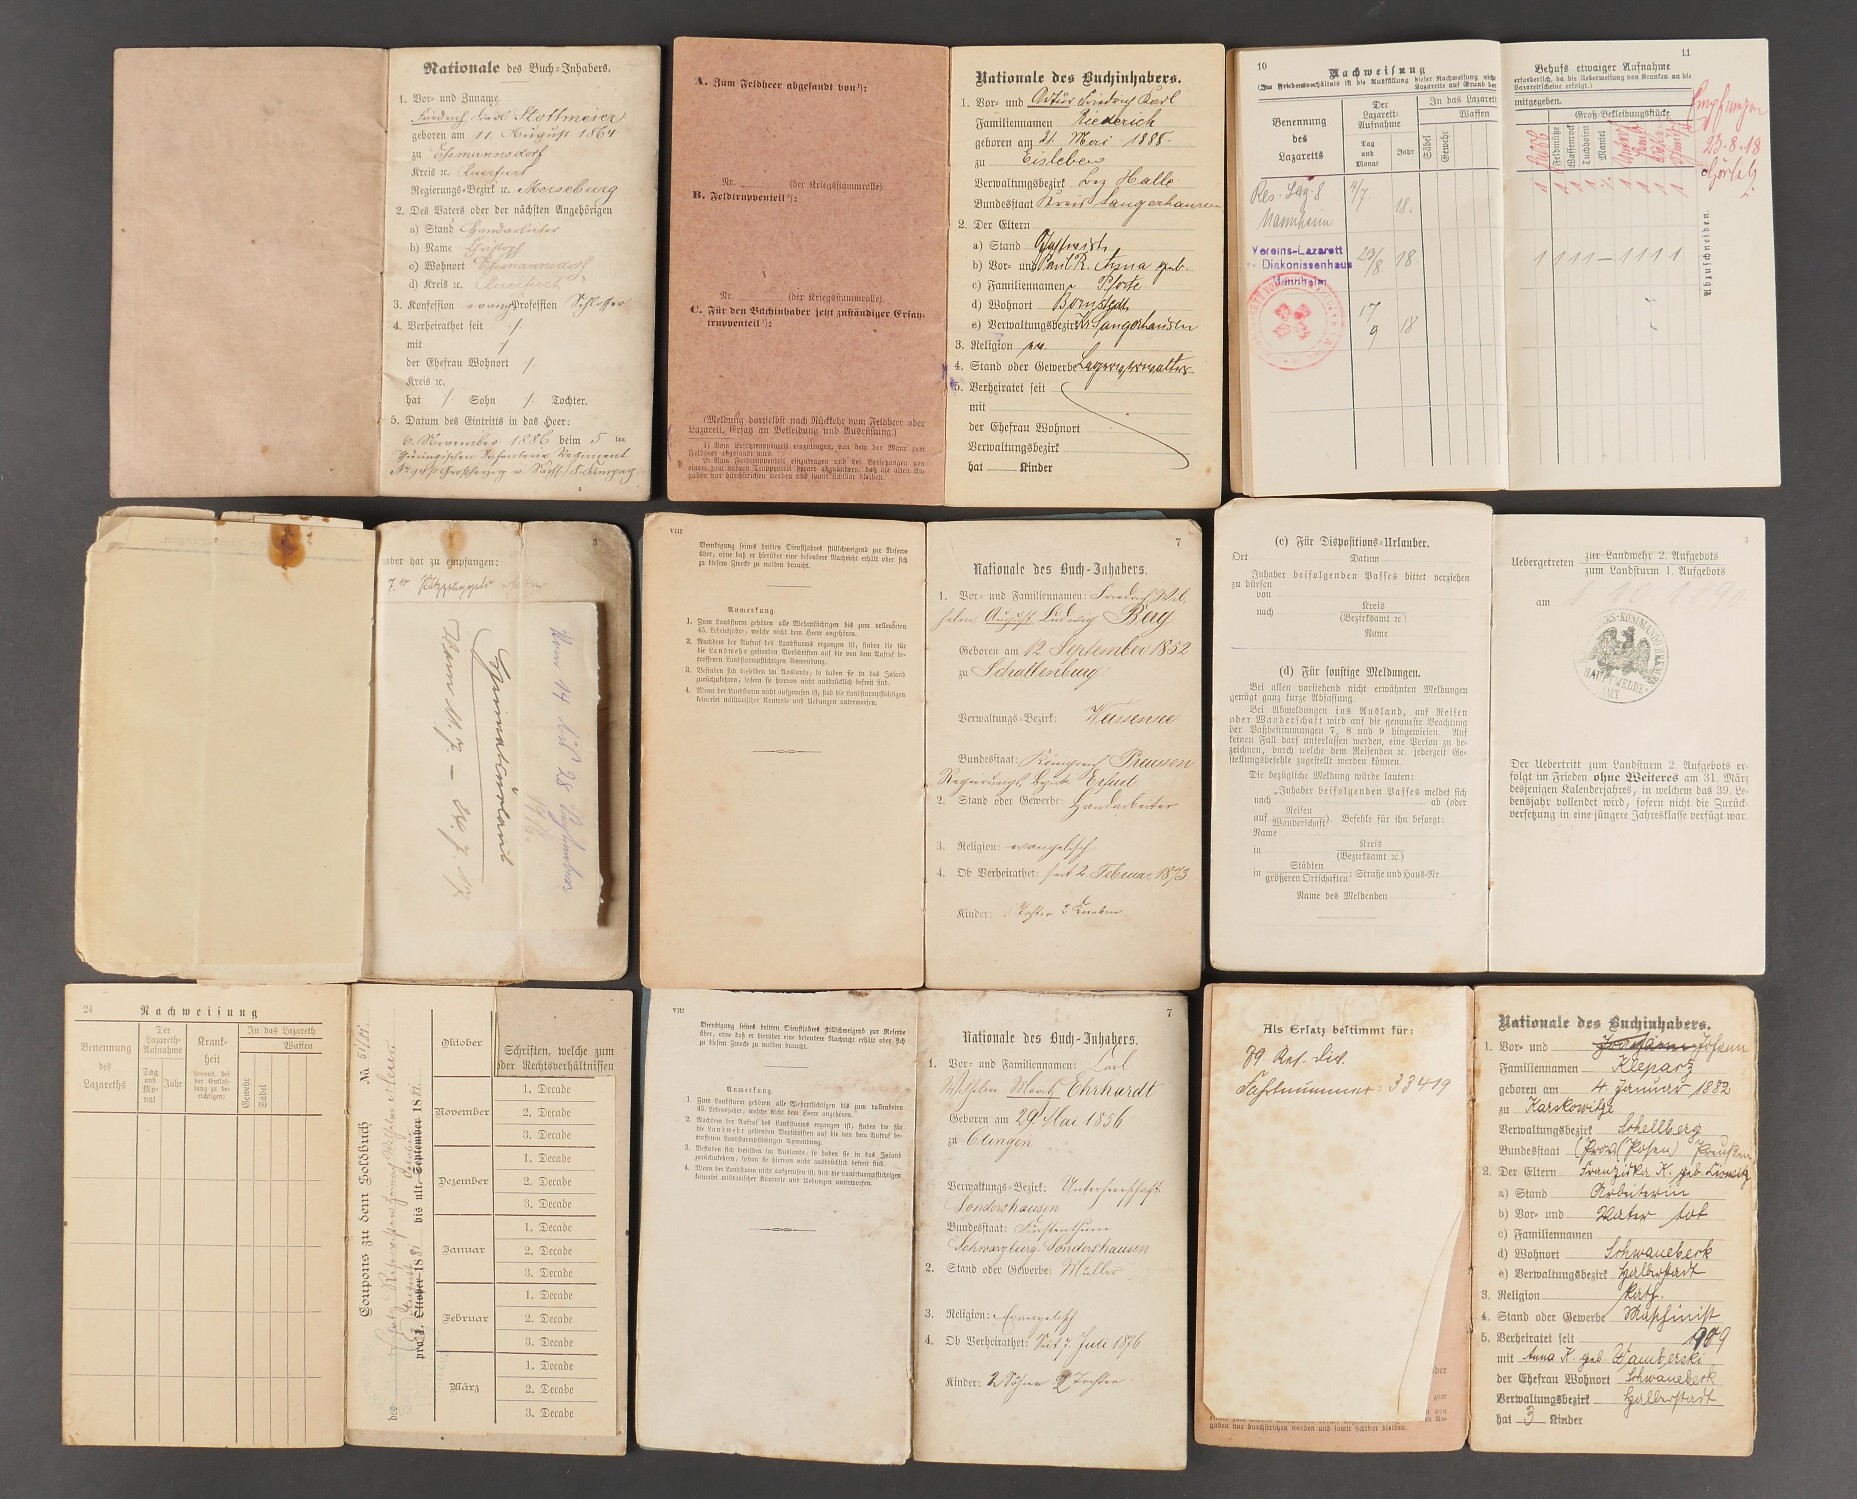 Nationale des Buch-Inhabers.
1. Vor- und Zuname
Friedrich Karl Stottmeier
geboren am 11 August 1864
zu Ehsmannsdorf
Kreis ꝛc. Querfurt
Regierungs-Bezirk ꝛc. Merseburg
2. Des Vaters oder der nächsten Angehörigen
a) Stand Handarbeiter
b) Name Christoph
c) Wohnort
d) Kreis ꝛc. Querfurt
3. Konfession evang. Profession Schlosser
4. Verheirathet seit ./.
mit ./.
der Ehefrau Wohnort ./.
Kreis ꝛc.
hat /. Sohn /. Tochter.
5. Datum des Eintritts in das Heer:
6. November 1886 beim 5 ten
Thüringischen Infanterie Regiment
A. Zum Feldheer abgesandt von¹):
Nr. (der Kriegsstammrolle).
B. Feldtruppenteil²):
Nr. (der Kriegsstammrolle).
C. Für den Buchinhaber jetzt zuständiger Ersatz-
truppenteil¹):
(Meldung dortselbst nach Rückkehr vom Feldheer oder
Lazarett, Ersatz an Bekleidung und Ausrüstung.)
1) Vom Ersatztruppenteil einzutragen, von dem der Mann zum
Feldheer abgesandt wird.
2) Vom Feldtruppenteil einzutragen und bei Versetzungen von
einem zum andern Truppenteil derart abzuändern, daß die alten An-
gaben nur durchstrichen werden und somit sichtbar bleiben.
Nationale des Buchinhabers.
1. Vor- und Artur Friedrich Karl
Familiennamen Riederich
geboren am 21. Mai 1888.
zu Eisleben
Verwaltungsbezirk Bez Halle
Bundesstaat Kreis Sangerhausen
2. Der Eltern
a) Stand Gastwirt
b) Vor- und Paul R. Anna geb.
c) Familiennamen Pforte
d) Wohnort Bornstedt
e) Verwaltungsbezirk Kr. Sangerhausen
3. Religion ev.
4. Stand oder Gewerbe Lagerverwalter
5. Verheiratet seit
mit
der Ehefrau Wohnort
Verwaltungsbezirk
hat Kinder
10
Nachweisung
(Im Friedensverhältnis ist die Ausfüllung dieser Nachweisung nicht
Lazarette auf Grund der
Benennung
des
Lazaretts
Der
Lazarett-
Aufnahme
Tag
und
Monat
Jahr
In das Lazarett
Waffen
Säbel
Gewehr
Res. Laz. 8
Mannheim
4/7 18.
Vereins-Lazarett
Diakonissenhaus
Mannheim
23/8 18
17
9 18
11
Behufs etwaiger Aufnahme
erforderlich, da die Ueberweisung von Kranken an die
Lazarettscheine erfolgt.)
mitgegeben.
Groß-Bekleidungsstücke
Feldmütze
Waffenrock
Tuchhosen
Mantel
Empfangen
23.8.18
Abzuschneiden.
3
aber hat zu empfangen:
Heimaturlaub
vom 11.7. – 24.7.17.
vom 14 bis 28 September
VIII
Beendigung seines dritten Dienstjahres stillschweigend zur Reserve
über, ohne daß er hierüber eine besondere Nachricht erhält oder sich
zu diesem Zwecke zu melden braucht.
Anmerkung.
1. Zum Landsturm gehören alle Wehrpflichtigen bis zum vollendeten
45. Lebensjahre, welche nicht dem Heere angehören.
2. Nachdem der Aufruf des Landsturms ergangen ist, finden die für
die Landwehr geltenden Vorschriften auf die von dem Aufruf be-
troffenen Landsturmpflichtigen Anwendung.
3. Befinden sich dieselben im Auslande, so haben sie in das Inland
zurückzukehren, sofern sie hiervon nicht ausdrücklich befreit sind.
4. Wenn der Landsturm nicht aufgerufen ist, sind die Landsturmpflichtigen
keinerlei militärischer Kontrole und Uebungen unterworfen.
7
Nationale des Buch-Inhabers.
1. Vor- und Familiennamen: Friedrich Wil-
helm August Ludwig Berg
Geboren am 12. September 1852
zu Schallenburg
Verwaltungs-Bezirk: Weissensee
Bundesstaat: Königreich Preussen
Regierungs-Bezirk Erfurt
2. Stand oder Gewerbe: Handarbeiter
3. Religion: evangelisch
4. Ob Verheirathet: seit 2. Februar 1873
Kinder: Tochter 2 Knaben
(c) Für Dispositions-Urlauber.
Ort Datum
Inhaber beifolgenden Passes bittet verziehen
zu dürfen
von
nach Kreis
(Bezirksamt ꝛc)
Name
(d) Für sonstige Meldungen.
Bei allen vorstehend nicht erwähnten Meldungen
genügt ganz kurze Abfassung.
Bei Abmeldungen ins Ausland, auf Reisen
oder Wanderschaft wird auf die genaueste Beachtung
der Paßbestimmungen 7, 8 und 9 hingewiesen. Auf
keinen Fall darf unterlassen werden, eine Person zu be-
zeichnen, durch welche dem Reisenden ꝛc. jederzeit Ge-
stellungsbefehle zugestellt werden können.
Die bezügliche Meldung würde lauten:
„Inhaber beifolgenden Passes meldet sich
nach ab (oder
auf Reisen
Wanderschaft). Befehle für ihn besorgt:
Name
in Kreis
(Bezirksamt ꝛc)
in Städten
größeren Ortschaften: Straße und Haus-Nr.
Name des Meldenden
3
Uebergetreten zur Landwehr 2. Aufgebots
zum Landsturm 1. Aufgebots
am
HAUPTMELDE-
AMT
Der Uebertritt zum Landsturm 2. Aufgebots er-
folgt im Frieden ohne Weiteres am 31. März
desjenigen Kalenderjahres, in welchem das 39. Le-
bensjahr vollendet wird, sofern nicht die Zurück-
versetzung in eine jüngere Jahresklasse verfügt war.
24
Nachweisung
Benennung
des
Lazareths
Der
Lazareth-
Aufnahme
Tag
und
Mo-
nat
Jahr
Krank-
heit
(event. bei
der Entlas-
sung zu be-
richtigen)
In das Lazareth
Waffen
Gewehr
Säbel
Coupons zu dem Soldbuch №
des
pro 1. Oktober 1881 bis ult. September 1881.
Schriften, welche zum
der Rechtsverhältnissen
Oktober
1. Decade
November
2. Decade
3. Decade
Dezember
1. Decade
2. Decade
3. Decade
Januar
1. Decade
2. Decade
3. Decade
Februar
1. Decade
2. Decade
3. Decade
März
1. Decade
2. Decade
3. Decade
VIII
Beendigung seines dritten Dienstjahres stillschweigend zur Reserve
über, ohne daß er hierüber eine besondere Nachricht erhält oder sich
zu diesem Zwecke zu melden braucht.
Anmerkung.
1. Zum Landsturm gehören alle Wehrpflichtigen bis zum vollendeten
45. Lebensjahre, welche nicht dem Heere angehören.
2. Nachdem der Aufruf des Landsturms ergangen ist, finden die für
die Landwehr geltenden Vorschriften auf die von dem Aufruf be-
troffenen Landsturmpflichtigen Anwendung.
3. Befinden sich dieselben im Auslande, so haben sie in das Inland
zurückzukehren, sofern sie hiervon nicht ausdrücklich befreit sind.
4. Wenn der Landsturm nicht aufgerufen ist, sind die Landsturmpflichtigen
keinerlei militärischer Kontrole und Uebungen unterworfen.
7
Nationale des Buch-Inhabers.
1. Vor- und Familiennamen: Carl
Wilhelm Moritz Ehrhardt
Geboren am 29. Mai 1856
zu Clingen
Verwaltungs-Bezirk: Unterherrschaft
Sondershausen
Bundesstaat: Fürstenthum
Schwarzburg-Sondershausen
2. Stand oder Gewerbe: Müller
3. Religion: Evangelisch
4. Ob Verheirathet: Seit 7. Juli 1876
Kinder: 2 Söhne 2 Tochter
Als Ersatz bestimmt für:
79. Res. Div.
Fahrtnummer: 33419
gaben nur durchstrichen werden und somit sichtbar bleiben.
Nationale des Buchinhabers.
1. Vor- und Johann
Familiennamen Kleparz
geboren am 4. Januar 1882
zu Karskowitze
Verwaltungsbezirk Schellberg
Bundesstaat (Prov. (Posen) Preußen
2. Der Eltern Franziska K. geb.
a) Stand Arbeiterin
b) Vor- und Vater tot
c) Familiennamen
d) Wohnort Schwanebeck
e) Verwaltungsbezirk Halberstadt
3. Religion kath.
4. Stand oder Gewerbe Maschinist
5. Verheiratet seit 1909
mit Anna K. geb.
der Ehefrau Wohnort Schwanebeck
Verwaltungsbezirk Halberstadt
hat 3 Kinder